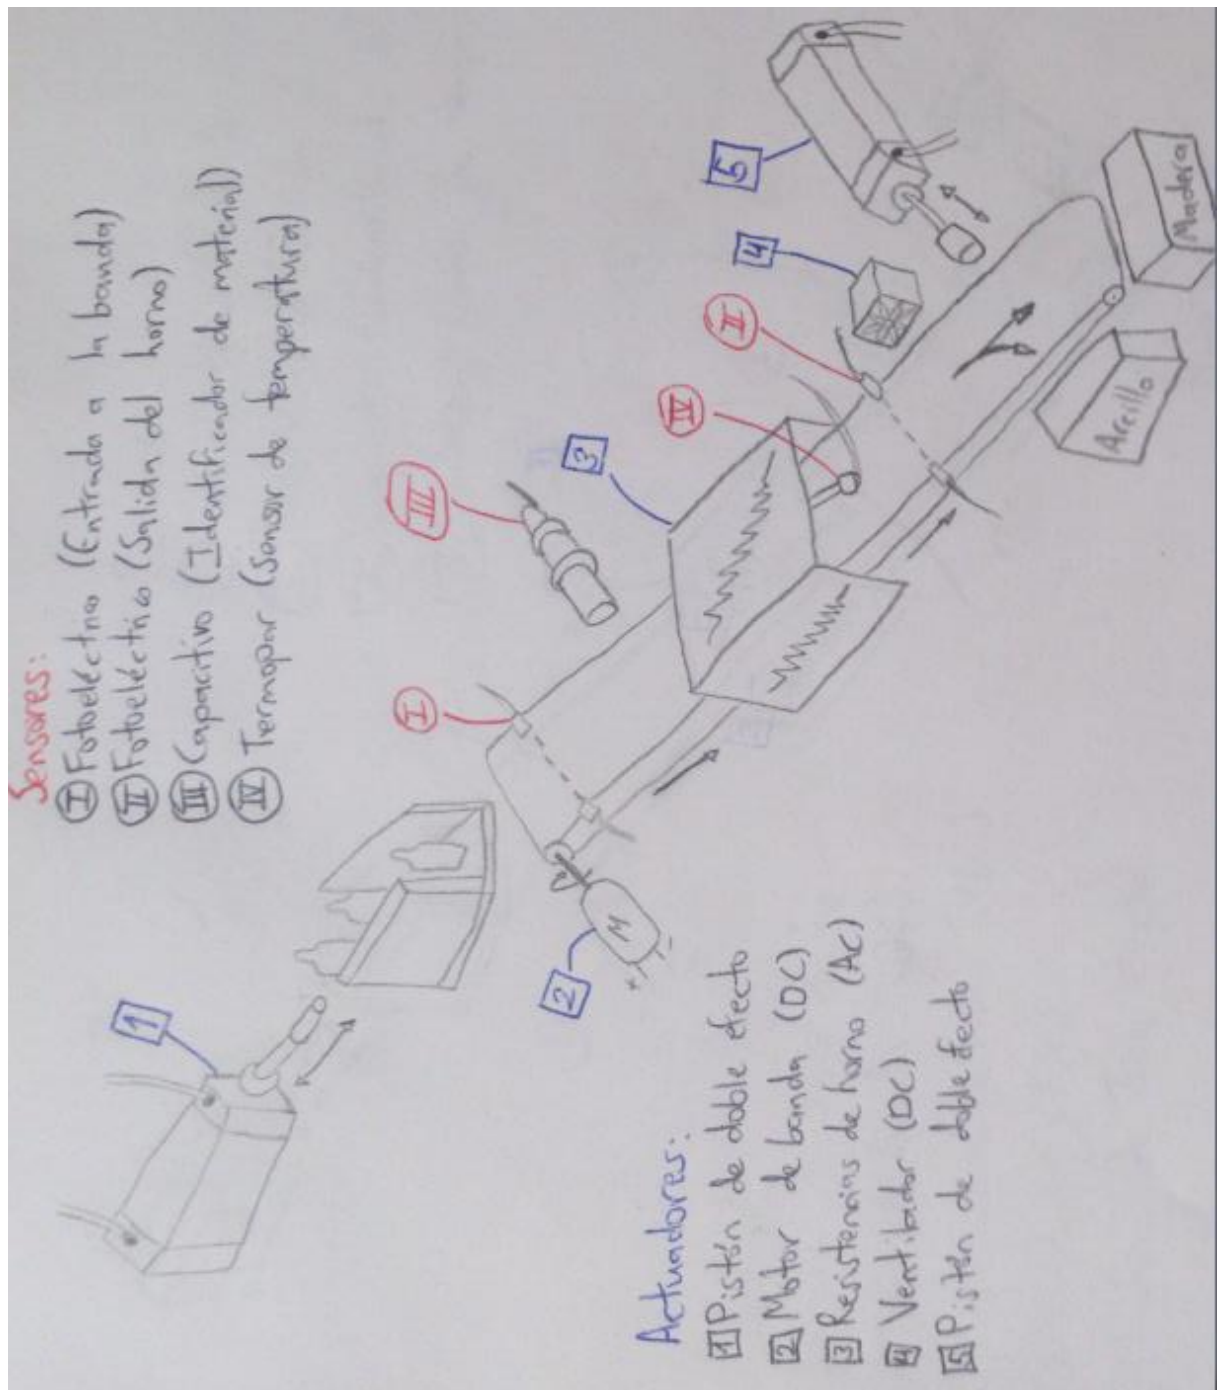 Sensores:
I Fotoeléctrico (Entrada a la banda)
II Fotoeléctrico (Salida del horno)
III Capacitivo (Identificador de material)
IV Termopar (Sensor de temperatura)
1
2
3
4
5
I
II
III
IV
M
+ -
Arcilla
Madera
Actuadores:
1 Pistón de doble efecto
2 Motor de banda (DC)
3 Resistencias de horno (AC)
4 Ventilador (DC)
5 Pistón de doble efecto